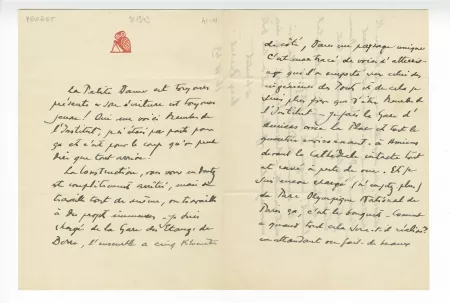 PERRET
La Petite Dame est toujours
présente & son écriture est toujours
jeune! Oui me voici Membre de
l'Institut, je n'étais pas parti pour
ça et c'est pour le coup qu'on peut
dire que tout arrive.
La construction, vous vous en doutez
est complètement arrêtée, mais on
travaille tout de même, on travaille
à des projets immenses. je suis
chargé de la Gare de l'Etang de
Berre, l'ensemble a cinq Kilomètres
de côté, Dans un paysage unique
C'est mon tracé de voies d'atterris-
age que l'on emporté sur celui des
ingénieurs des Ponts et de cela je
suis plus fier que d'être Membre de
l'Institut — je fais la Gare d'
Amiens avec la Place et tout le
quartier environnant. à Amiens
devant la Cathédrale intacte tout
est rasé à perte de vue. Et je
suis encore chargé (n'en jetez plus)
du Parc Olympique National de
Paris ça, c'est le bouquet. Comment
& quand tout cela sera-t-il réalisé?
en attendant on fait de beaux